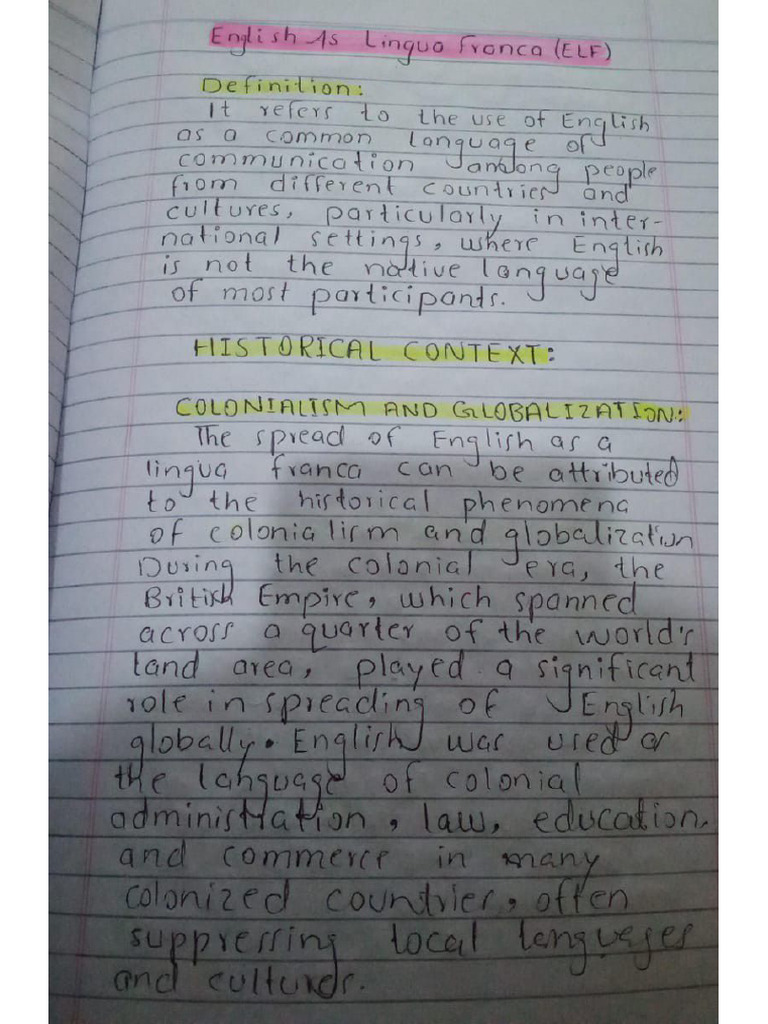 English As Lingua Franca (ELF)
Definition:
It refers to the use of English
as a common language of
communication among people
from different countries and
cultures, particularly in inter-
national settings, where English
is not the native language
of most participants.
HISTORICAL CONTEXT:
COLONIALISM AND GLOBALIZATION:
The spread of English as a
lingua franca can be attributed
to the historical phenomena
of colonialism and globalization
During the colonial era, the
British Empire, which spanned
across a quarter of the world's
land area, played a significant
role in spreading of English
globally. English was used as
the language of colonial
administration, law, education,
and commerce in many
colonized countries, often
suppressing local languages
and cultures.